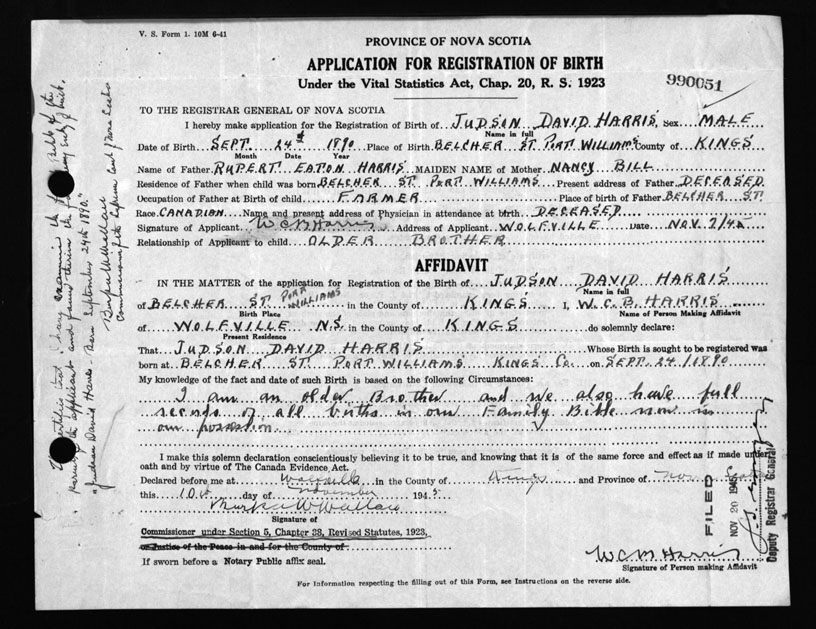 V. S. Form 1. 10M 6-41
PROVINCE OF NOVA SCOTIA
APPLICATION FOR REGISTRATION OF BIRTH
Under the Vital Statistics Act, Chap. 20, R. S. 1923
990051
TO THE REGISTRAR GENERAL OF NOVA SCOTIA
I hereby make application for the Registration of Birth of JUDSON DAVID HARRIS, Sex MALE
Name in full
Date of Birth SEPT. 24th 1890 Place of Birth BELCHER ST. PORT WILLIAMS County of KINGS
Month Date Year
Name of Father RUPERT EATON HARRIS MAIDEN NAME of Mother NANCY BILL
Residence of Father when child was born BELCHER ST. PORT WILLIAMS Present address of Father DECEASED
Occupation of Father at Birth of child FARMER Place of birth of Father BELCHER ST.
Race CANADIAN Name and present address of Physician in attendance at birth DECEASED
Signature of Applicant Harris Address of Applicant WOLFVILLE Date NOV. 7/45
Relationship of Applicant to child OLDER BROTHER
AFFIDAVIT
IN THE MATTER of the application for Registration of the Birth of JUDSON DAVID HARRIS
Name in full
of BELCHER ST. PORT WILLIAMS in the County of KINGS I, W. C. B. HARRIS
Birth Place Name of Person Making Affidavit
of WOLFVILLE N.S. in the County of KINGS do solemnly declare:
Present Residence
That JUDSON DAVID HARRIS Whose Birth is sought to be registered was
born at BELCHER ST. PORT WILLIAMS KINGS Co. on SEPT. 24/1890
My knowledge of the fact and date of such Birth is based on the following Circumstances:
I am an older Brother and we also have full
records of all births in our Family Bible now in
our possession
I make this solemn declaration conscientiously believing it to be true, and knowing that it is of the same force and effect as if made under
oath and by virtue of The Canada Evidence Act.
Declared before me at Wolfville in the County of Kings and Province of Nova Scotia
this 10th day of November 1945
Wallace
Signature of
Commissioner under Section 5, Chapter 28, Revised Statutes, 1923,
or Justice of the Peace in and for the County of
If sworn before a Notary Public affix seal.
Harris
Signature of Person making Affidavit
For Information respecting the filling out of this Form, see Instructions on the reverse side.
FILED
NOV 20 1945
Deputy Registrar General
I certify that I have examined the family Bible of the
of the applicant and found therein the following entry of birth.
"Judson David Harris Born September 24th 1890."
Wallace
Commissioner of the Supreme Court of Nova Scotia